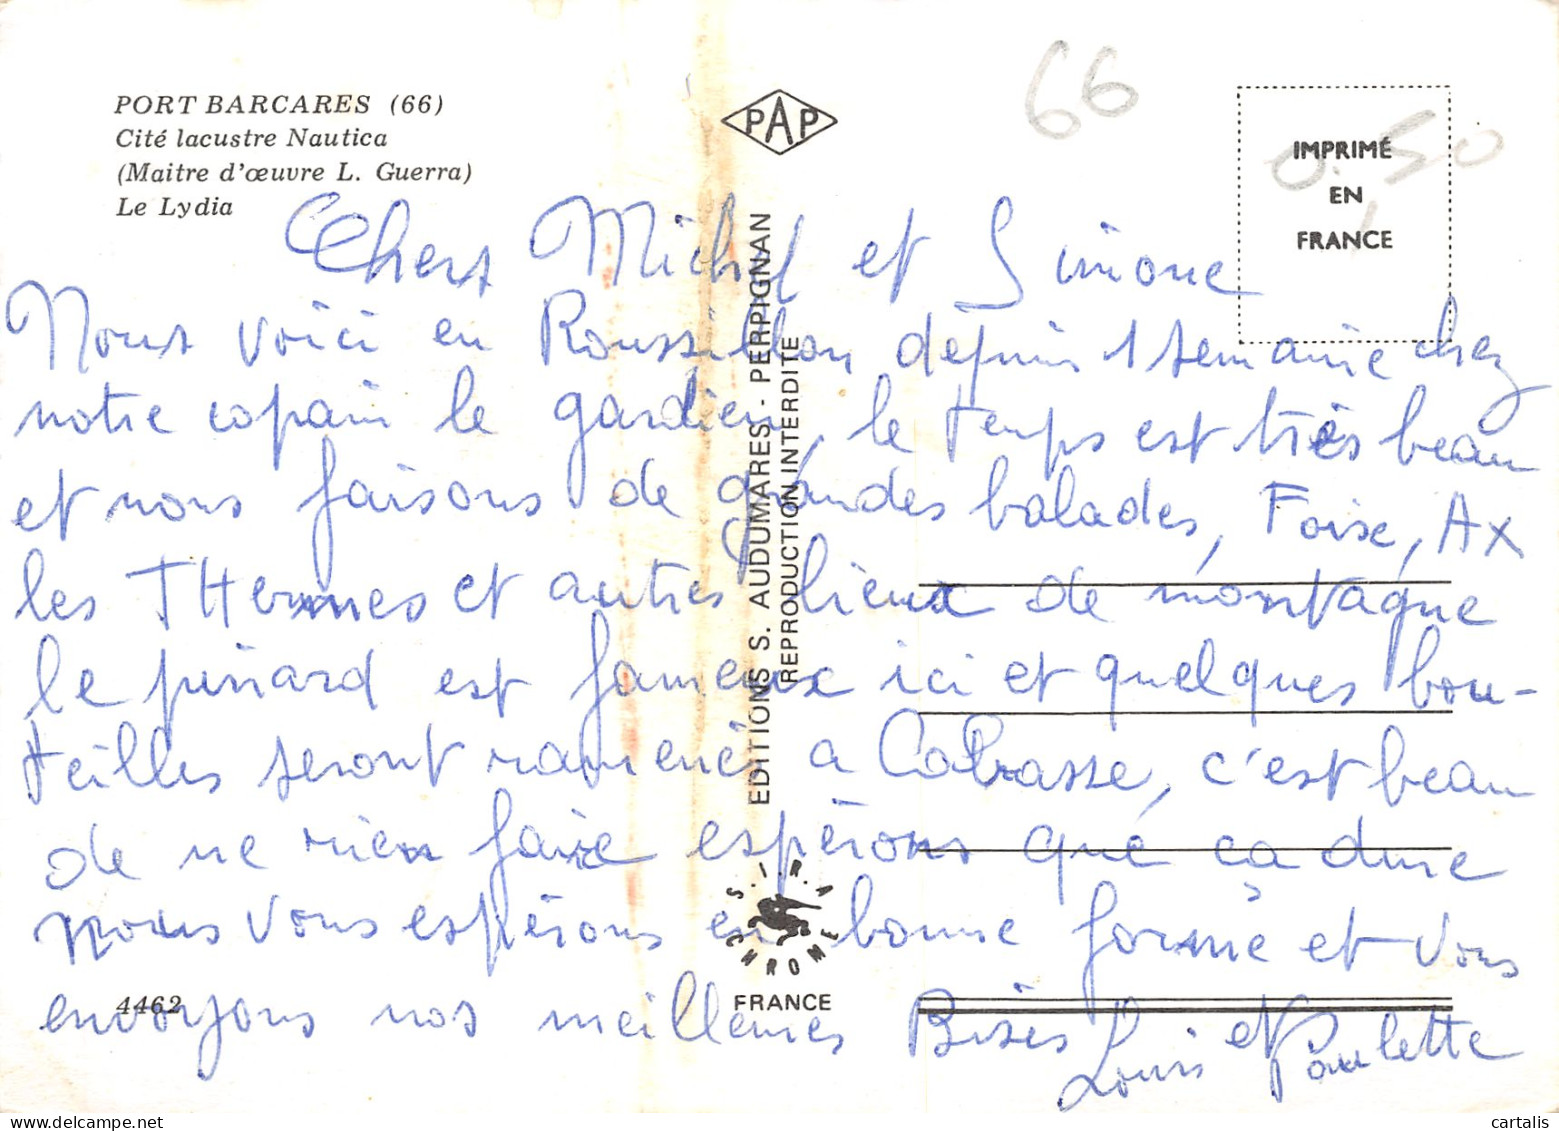 PORT BARCARES (66)
Cité lacustre Nautica
(Maitre d'œuvre L. Guerra)
Le Lydia
PAP
66
0.50
IMPRIMÉ
EN
FRANCE
Chers Michel et Simone
Nous voici en Roussillon depuis 1 semaine chez
notre copain le gardien, le temps est très beau
et nous faisons de grandes balades, Foix, Ax
les THermes et autres lieux de montagne
le pinard est fameux ici et quelques bou-
teilles seront ramenés a Cabrasse, c'est beau
de ne rien faire espérons que ça dure
nous vous espérons en bonne forme et vous
envoyons nos meilleures Bises
Louis et Paulette
EDITIONS S. AUDUMARES - PERPIGNAN
REPRODUCTION INTERDITE
S.I.R.A
CHROME
FRANCE
4462
cartalis